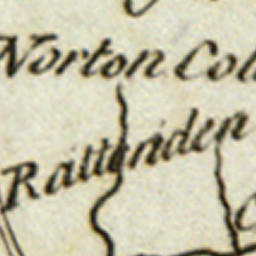 Norton Col
Rattenden